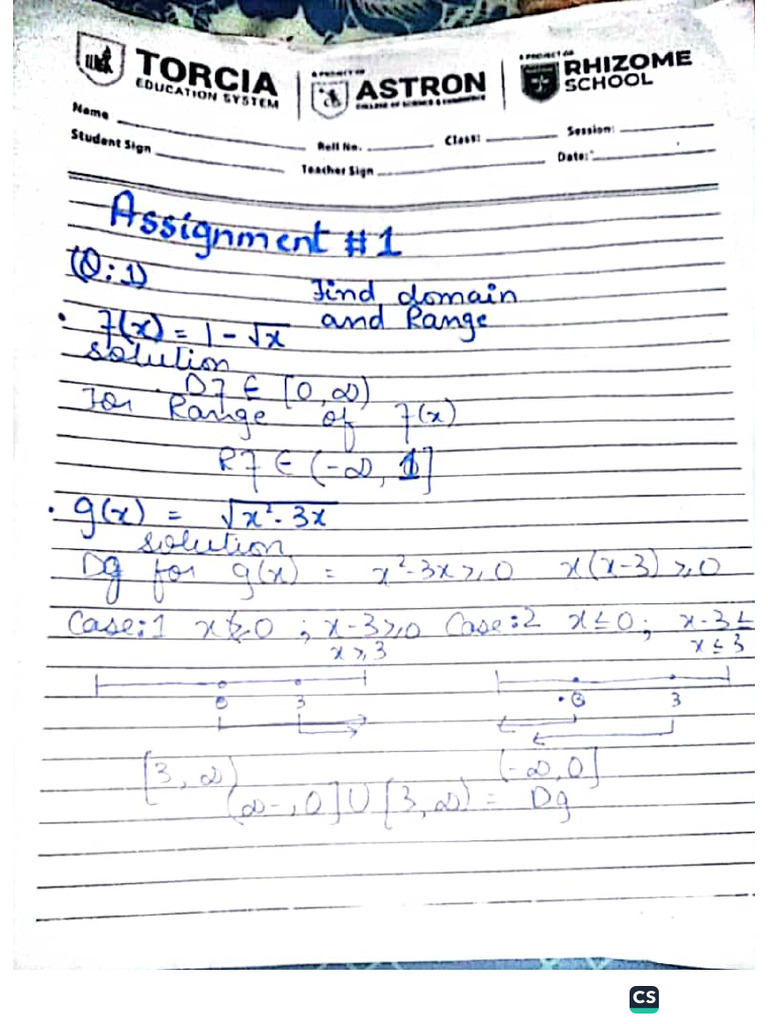 TORCIA
EDUCATION SYSTEM
A PROJECT OF
ASTRON
COLLEGE OF SCIENCE & COMMERCE
A PROJECT OF
RHIZOME
SCHOOL
Name Roll No. Class: Session:
Student Sign Teacher Sign Date:
Assignment #1
(Q:1)
Find domain
and Range
• f(x) = 1 - √x
solution
Df ∈ [0, ∞)
For Range of f(x)
Rf ∈ (-∞, 1]
• g(x) = √x² - 3x
solution
Dg for g(x) = x² - 3x ≥ 0 x(x-3) ≥ 0
Case:1 x ≥ 0 ; x-3 ≥ 0 Case:2 x ≤ 0 ; x-3 ≤
x ≥ 3 x ≤ 3
0 3 0 3
[3, ∞) (-∞, 0]
(∞-, 0] U [3, ∞) = Dg
CS